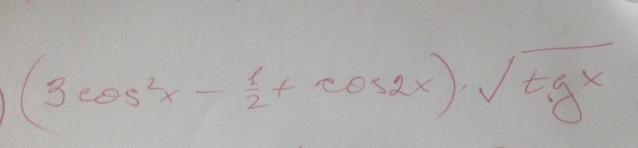 ) (3cos²x - 1/2 + cos2x) · √tgx